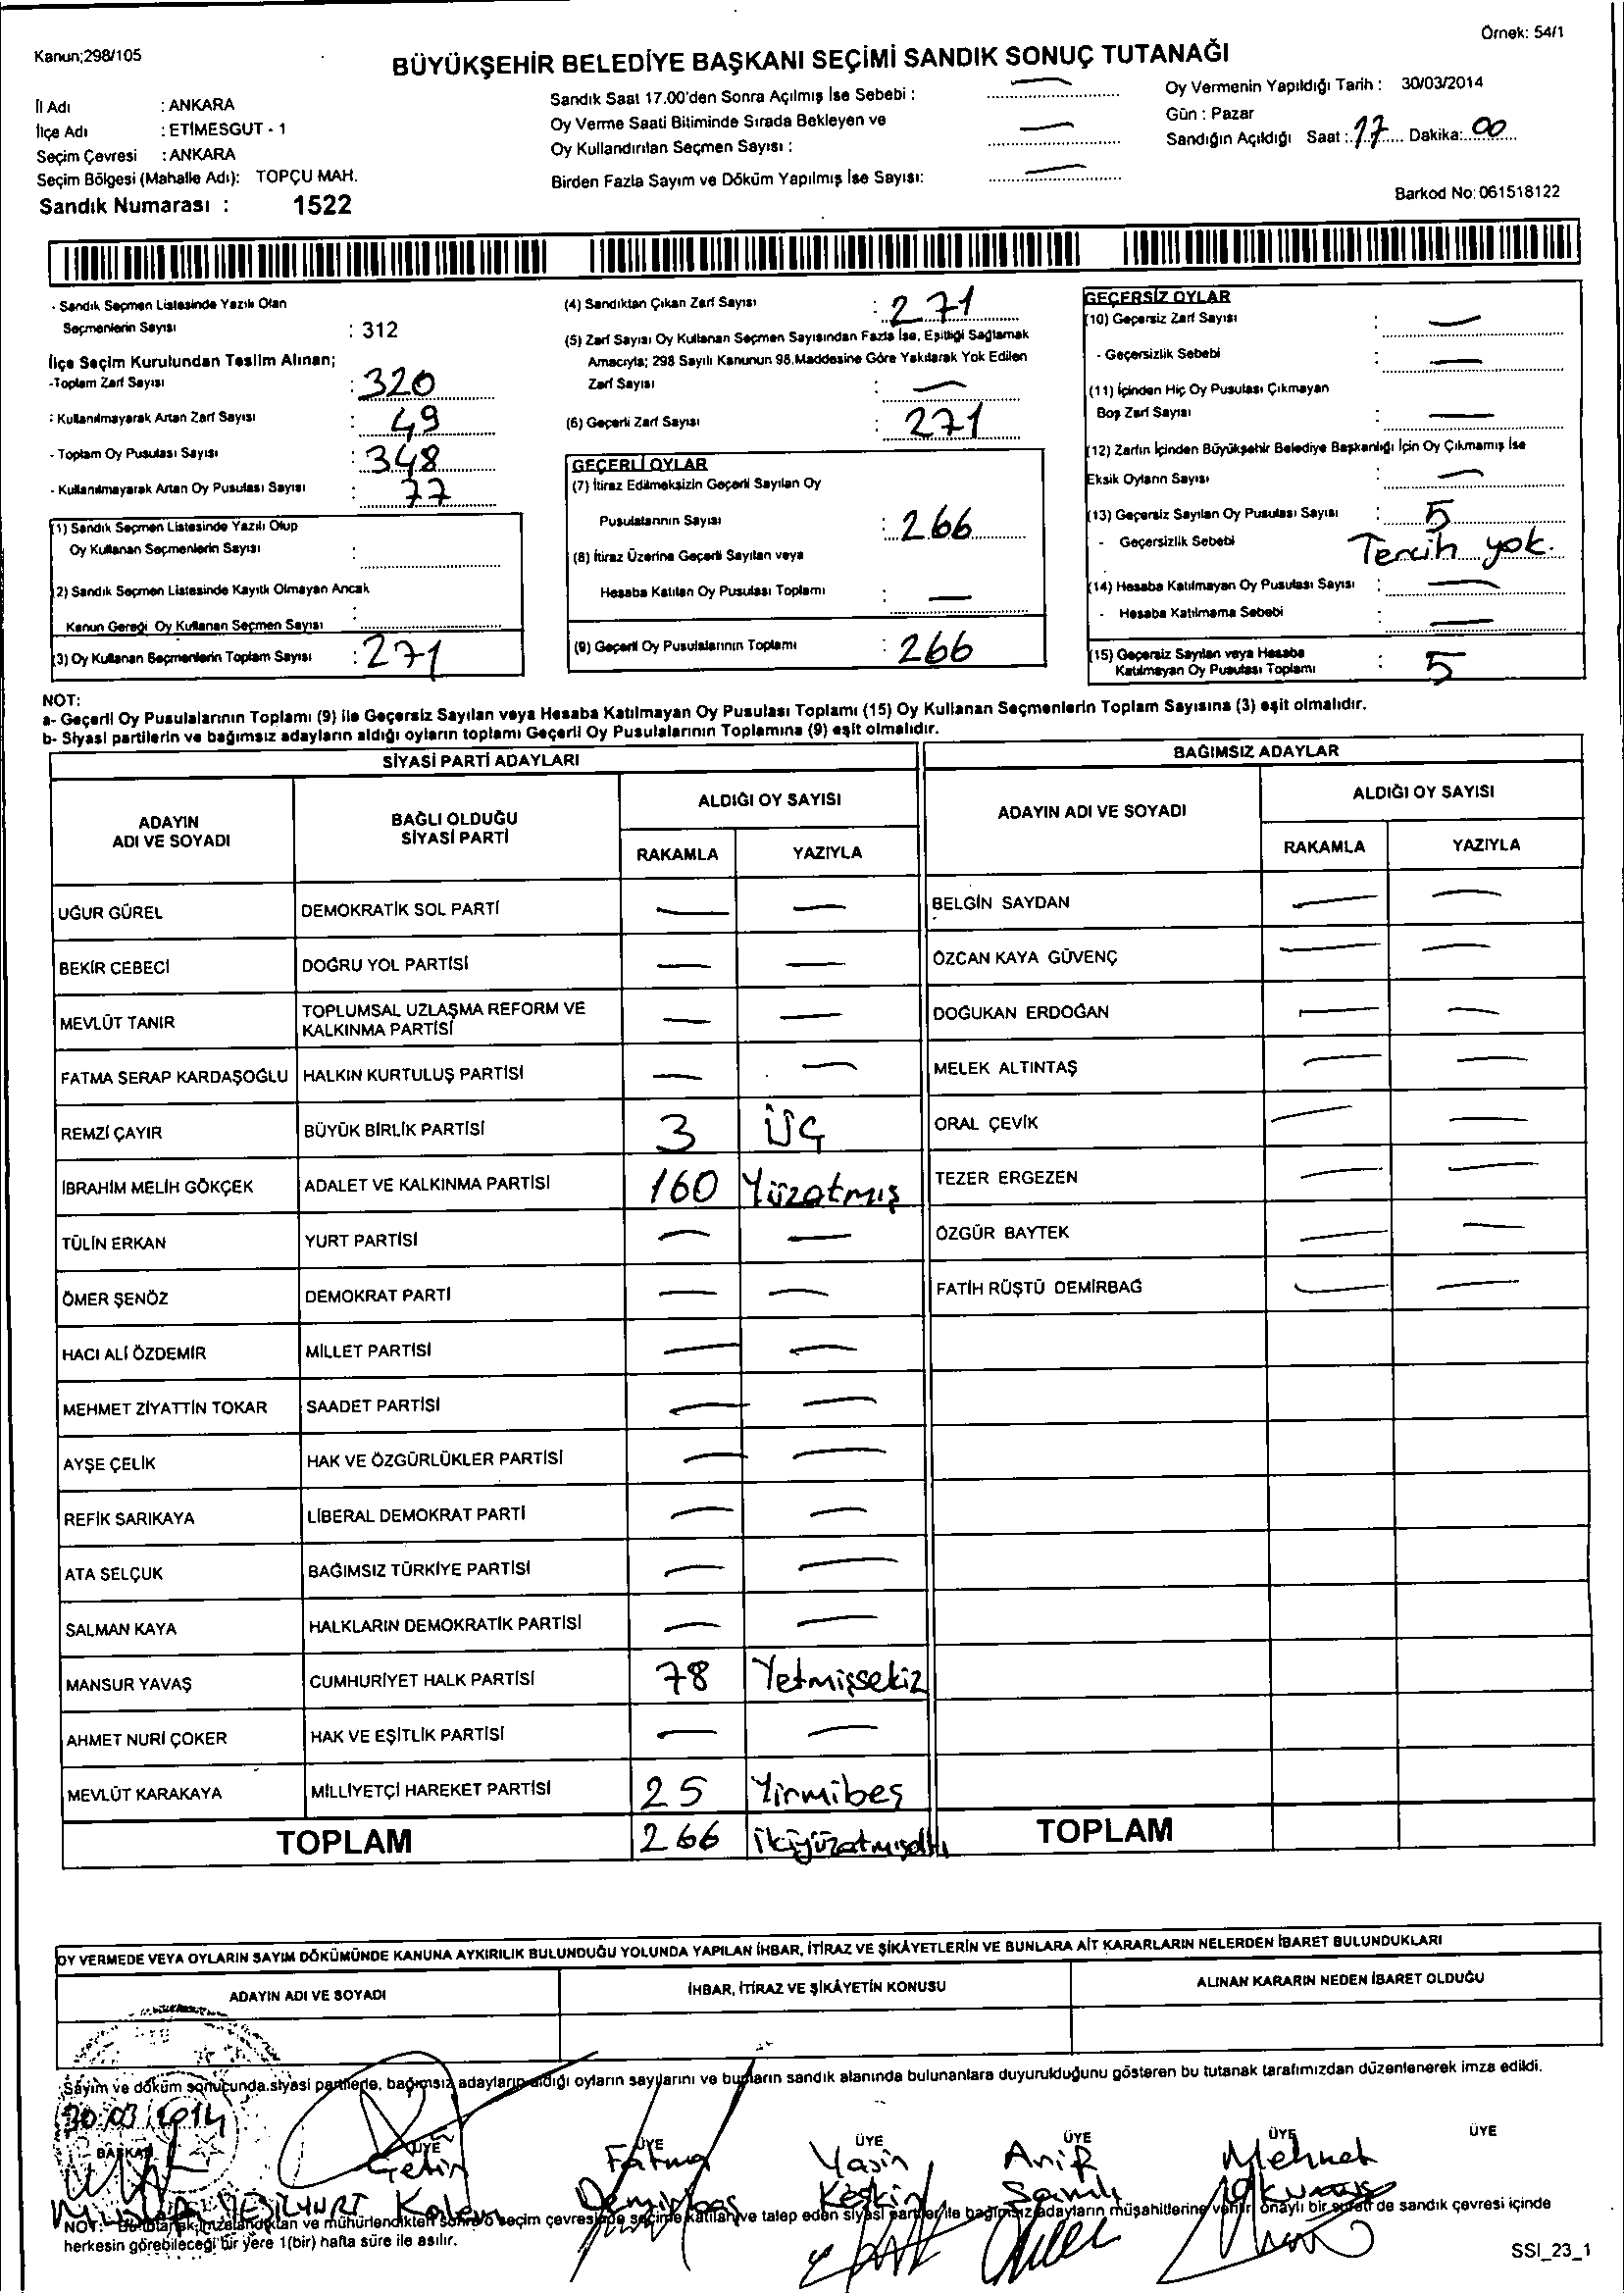 Kanun;298/105
Örnek: 54/1
BÜYÜKŞEHİR BELEDİYE BAŞKANI SEÇİMİ SANDIK SONUÇ TUTANAĞI
İl Adı : ANKARA
İlçe Adı : ETİMESGUT - 1
Seçim Çevresi : ANKARA
Seçim Bölgesi (Mahalle Adı): TOPÇU MAH.
Sandık Numarası : 1522
Sandık Saat 17.00'den Sonra Açılmış İse Sebebi : —
Oy Verme Saati Bitiminde Sırada Bekleyen ve
Oy Kullandırılan Seçmen Sayısı : —
Birden Fazla Sayım ve Döküm Yapılmış İse Sayısı: —
Oy Vermenin Yapıldığı Tarih : 30/03/2014
Gün : Pazar
Sandığın Açıldığı Saat : 17 Dakika: 00
Barkod No: 061518122
- Sandık Seçmen Listesinde Yazılı Olan
Seçmenlerin Sayısı : 312
İlçe Seçim Kurulundan Teslim Alınan;
-Toplam Zarf Sayısı : 320
- Kullanılmayarak Artan Zarf Sayısı : 49
- Toplam Oy Pusulası Sayısı : 348
- Kullanılmayarak Artan Oy Pusulası Sayısı : 77
(1) Sandık Seçmen Listesinde Yazılı Olup
Oy Kullanan Seçmenlerin Sayısı :
2) Sandık Seçmen Listesinde Kayıtlı Olmayan Ancak
Kanun Gereği Oy Kullanan Seçmen Sayısı :
(3) Oy Kullanan Seçmenlerin Toplam Sayısı : 271
(4) Sandıktan Çıkan Zarf Sayısı : 271
(5) Zarf Sayısı Oy Kullanan Seçmen Sayısından Fazla İse, Eşitliği Sağlamak
Amacıyla; 298 Sayılı Kanunun 98.Maddesine Göre Yakılarak Yok Edilen
Zarf Sayısı : —
(6) Geçerli Zarf Sayısı : 271
GEÇERLİ OYLAR
(7) İtiraz Edilmeksizin Geçerli Sayılan Oy
Pusulalarının Sayısı : 266
(8) İtiraz Üzerine Geçerli Sayılan veya
Hesaba Katılan Oy Pusulası Toplamı : —
(9) Geçerli Oy Pusulalarının Toplamı : 266
GEÇERSİZ OYLAR
(10) Geçersiz Zarf Sayısı : —
- Geçersizlik Sebebi : —
(11) İçinden Hiç Oy Pusulası Çıkmayan
Boş Zarf Sayısı : —
(12) Zarfın İçinden Büyükşehir Belediye Başkanlığı İçin Oy Çıkmamış İse
Eksik Oyların Sayısı : —
(13) Geçersiz Sayılan Oy Pusulası Sayısı : 5
- Geçersizlik Sebebi Tercih yok.
(14) Hesaba Katılmayan Oy Pusulası Sayısı : —
- Hesaba Katılmama Sebebi : —
(15) Geçersiz Sayılan veya Hesaba
Katılmayan Oy Pusulası Toplamı : 5
NOT:
a- Geçerli Oy Pusulalarının Toplamı (9) ile Geçersiz Sayılan veya Hesaba Katılmayan Oy Pusulası Toplamı (15) Oy Kullanan Seçmenlerin Toplam Sayısına (3) eşit olmalıdır.
b- Siyasi partilerin ve bağımsız adayların aldığı oyların toplamı Geçerli Oy Pusulalarının Toplamına (9) eşit olmalıdır.
SİYASİ PARTİ ADAYLARI
ADAYIN
ADI VE SOYADI
BAĞLI OLDUĞU
SİYASİ PARTİ
ALDIĞI OY SAYISI
RAKAMLA YAZIYLA
UĞUR GÜREL DEMOKRATİK SOL PARTİ — —
BEKİR CEBECİ DOĞRU YOL PARTİSİ — —
MEVLÜT TANIR TOPLUMSAL UZLAŞMA REFORM VE
KALKINMA PARTİSİ — —
FATMA SERAP KARDAŞOĞLU HALKIN KURTULUŞ PARTİSİ — —
REMZİ ÇAYIR BÜYÜK BİRLİK PARTİSİ 3 ÜÇ
İBRAHİM MELİH GÖKÇEK ADALET VE KALKINMA PARTİSİ 160 Yüzatmış
TÜLİN ERKAN YURT PARTİSİ — —
ÖMER ŞENÖZ DEMOKRAT PARTİ — —
HACI ALİ ÖZDEMİR MİLLET PARTİSİ — —
MEHMET ZİYATTİN TOKAR SAADET PARTİSİ — —
AYŞE ÇELİK HAK VE ÖZGÜRLÜKLER PARTİSİ — —
REFİK SARIKAYA LİBERAL DEMOKRAT PARTİ — —
ATA SELÇUK BAĞIMSIZ TÜRKİYE PARTİSİ — —
SALMAN KAYA HALKLARIN DEMOKRATİK PARTİSİ — —
MANSUR YAVAŞ CUMHURİYET HALK PARTİSİ 78 Yetmişsekiz
AHMET NURİ ÇOKER HAK VE EŞİTLİK PARTİSİ — —
MEVLÜT KARAKAYA MİLLİYETÇİ HAREKET PARTİSİ 25 Yirmibeş
TOPLAM 266 ikiyüzatmışaltı
BAĞIMSIZ ADAYLAR
ADAYIN ADI VE SOYADI
ALDIĞI OY SAYISI
RAKAMLA YAZIYLA
BELGİN SAYDAN — —
ÖZCAN KAYA GÜVENÇ — —
DOĞUKAN ERDOĞAN — —
MELEK ALTINTAŞ — —
ORAL ÇEVİK — —
TEZER ERGEZEN — —
ÖZGÜR BAYTEK — —
FATİH RÜŞTÜ DEMİRBAĞ — —
TOPLAM
OY VERMEDE VEYA OYLARIN SAYIM DÖKÜMÜNDE KANUNA AYKIRILIK BULUNDUĞU YOLUNDA YAPILAN İHBAR, İTİRAZ VE ŞİKÂYETLERİN VE BUNLARA AİT KARARLARIN NELERDEN İBARET BULUNDUKLARI
ADAYIN ADI VE SOYADI
İHBAR, İTİRAZ VE ŞİKÂYETİN KONUSU
ALINAN KARARIN NEDEN İBARET OLDUĞU
Sayım ve döküm sonucunda siyasi partilerle, bağımsız adayların aldığı oyların sayılarını ve bunların sandık alanında bulunanlara duyurulduğunu gösteren bu tutanak tarafımızdan düzenlenerek imza edildi.
30.03.2014
BAŞKAN ÜYE ÜYE ÜYE ÜYE ÜYE ÜYE
Çetin Fatma Yasin Arif Mehmet
YEŞİLYURT Kalem Demirbaş Keskin Şamlı
NOT: Bu tutanak imzalandıktan ve mühürlendikten sonra o seçim çevresinde seçime katılan ve talep eden siyasi partiler ile bağımsız adayların müşahitlerine verilir, onaylı bir sureti de sandık çevresi içinde
herkesin görebileceği bir yere 1(bir) hafta süre ile asılır.
SSI_23_1